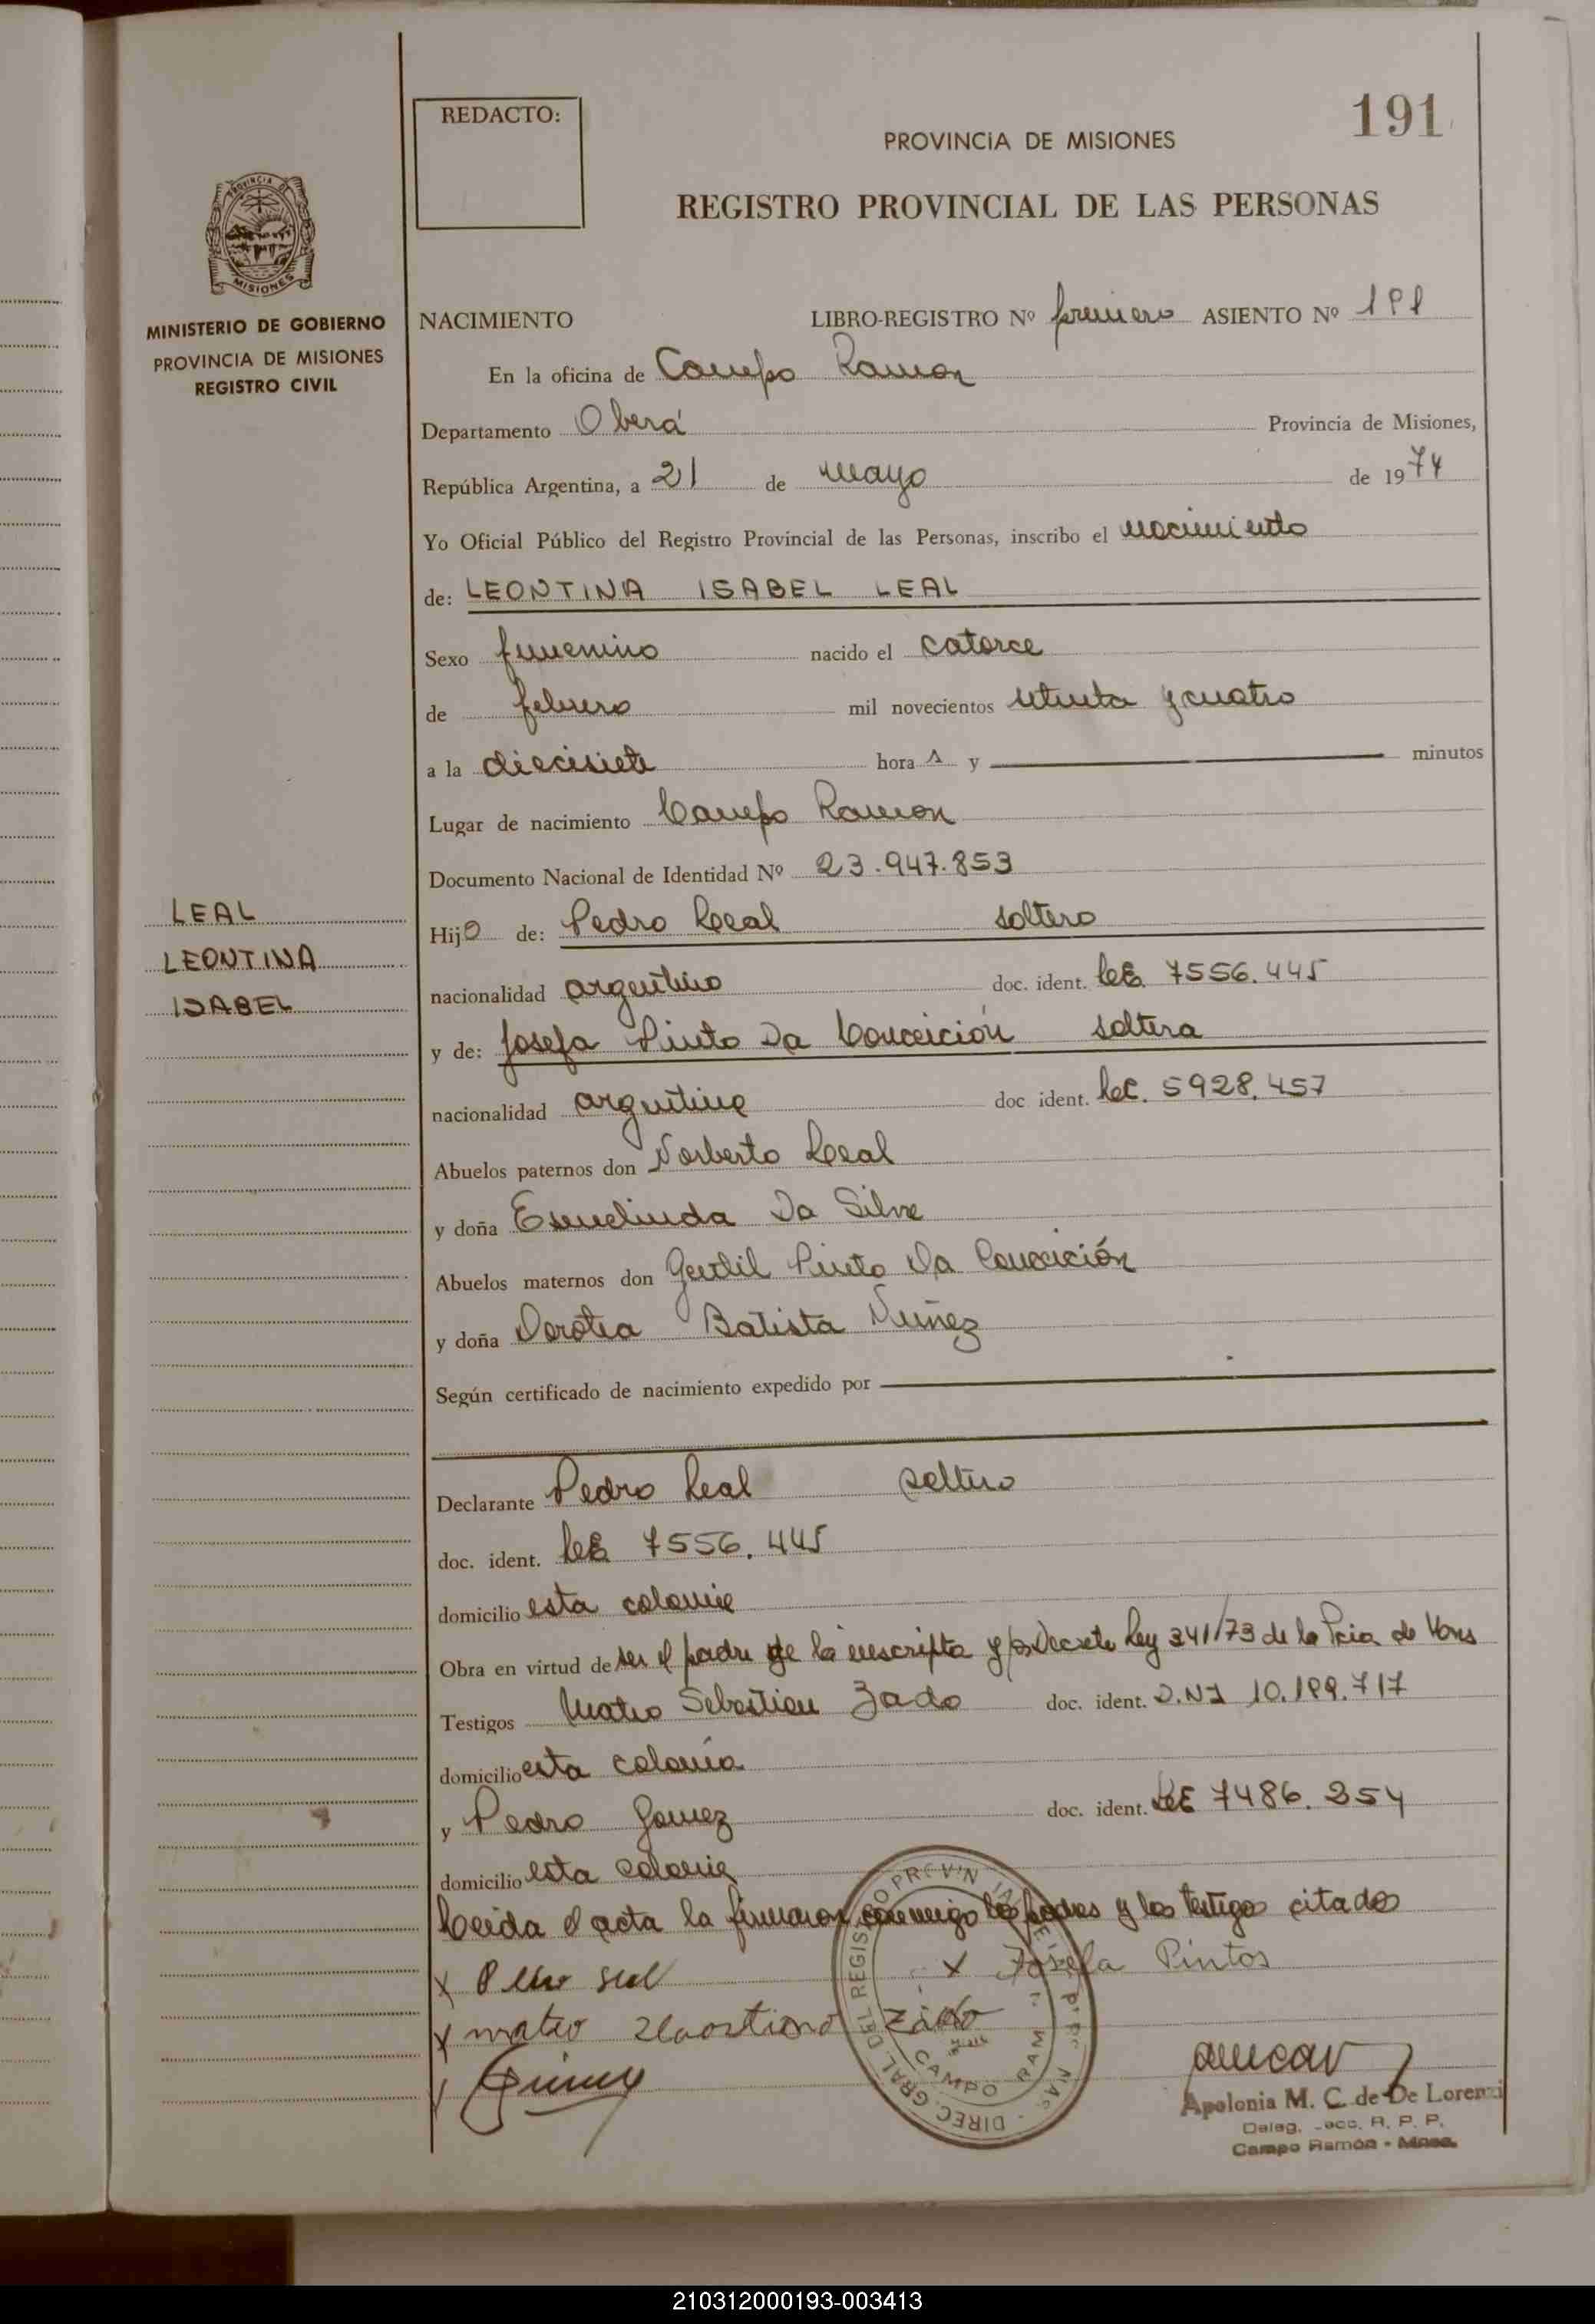 REDACTO:
191
PROVINCIA DE MISIONES
REGISTRO PROVINCIAL DE LAS PERSONAS
PROVINCIA DE
MISIONES
MINISTERIO DE GOBIERNO
PROVINCIA DE MISIONES
REGISTRO CIVIL
NACIMIENTO LIBRO-REGISTRO Nº primero ASIENTO Nº 191
En la oficina de Campo Ramon
Departamento Oberá Provincia de Misiones,
República Argentina, a 21 de mayo de 1974
Yo Oficial Público del Registro Provincial de las Personas, inscribo el nacimiento
de: LEONTINA ISABEL LEAL
Sexo femenino nacido el catorce
de febrero mil novecientos setenta y cuatro
a la diecisiete hora s y minutos
Lugar de nacimiento Campo Ramon
Documento Nacional de Identidad Nº 23.947.853
LEAL
LEONTINA
ISABEL
Hijo de: Pedro Leal soltero
nacionalidad argentino doc. ident. LeE 7556.445
y de: Josefa Pinto Da Conceición soltera
nacionalidad argentina doc ident. LeC. 5928.457
Abuelos paternos don Norberto Leal
y doña Esmelinda Da Silva
Abuelos maternos don Gentil Pinto Da Conceición
y doña Dorotea Batista Nuñez
Según certificado de nacimiento expedido por
Declarante Pedro Leal soltero
doc. ident. LeE 7556.445
domicilio esta colonia
Obra en virtud de ser el padre de la inscripta y p/Decreto Ley 341/73 de la Pcia de
Testigos Mateo Sebastian Zado doc. ident. D.N.I 10.199.717
domicilio esta colonia
y Pedro Gomez doc. ident. LeE 7486.254
domicilio esta colonia
Leida el acta la firmaron conmigo los padres y los testigos citados
x x Josefa Pintos
x mateo Zado
DIREC. GRAL. DEL REGISTRO PROVINCIAL DE
CAMPO RAM
Apolonia M. C. de De Lorenzi
Deleg. R. P. P.
Campo Ramón - Mnes.
210312000193-003413